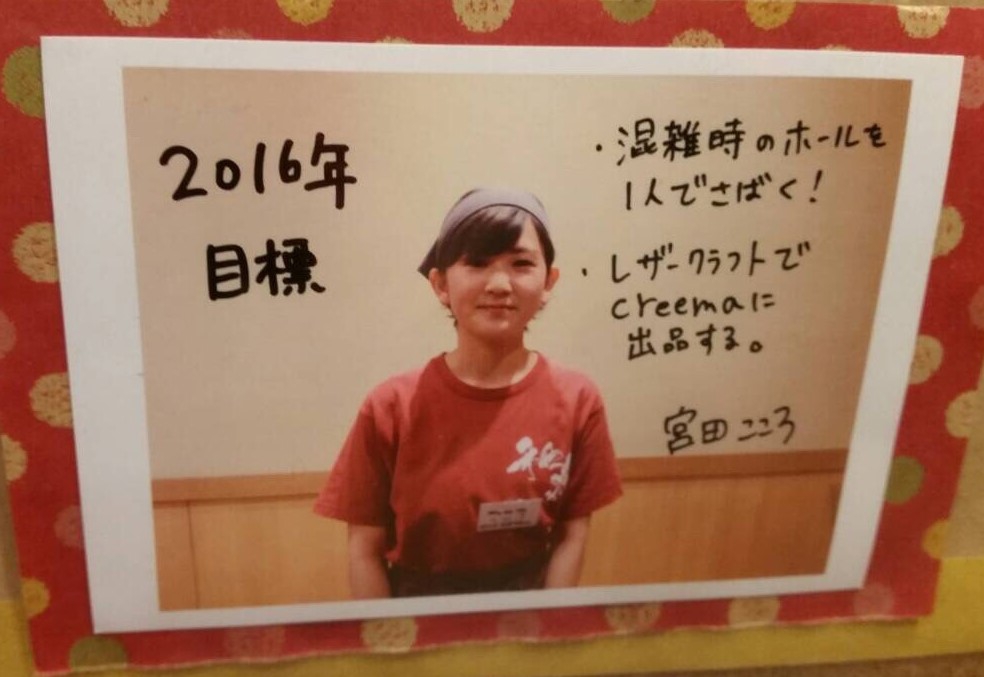 2016年
目標
・混雑時のホールを
1人でさばく！
・レザークラフトで
creemaに
出品する。
宮田こころ